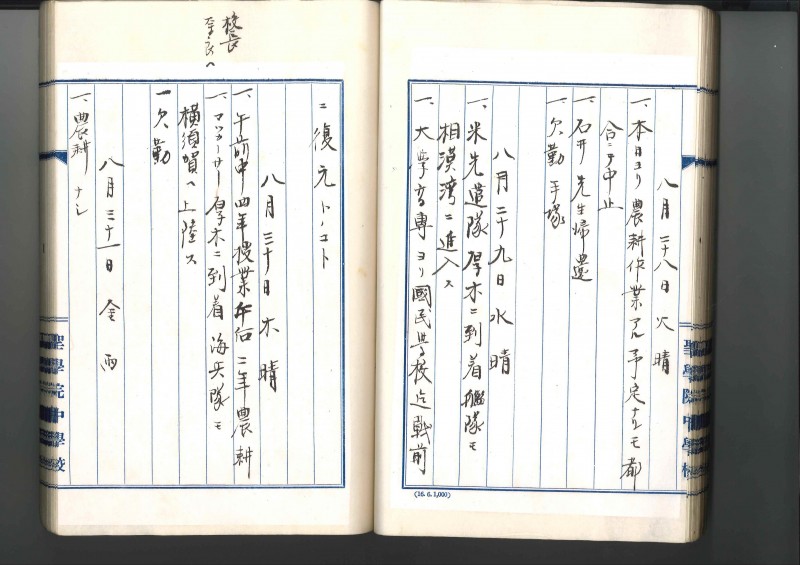 八月二十八日 火 晴
一、本日ヨリ農耕作業アル予定ナルモ都
合ニテ中止
一、石井先生帰還
一、欠勤 手塚
八月二十九日 水 晴
一、米先遣隊厚木ニ到着艦隊モ
相模湾ニ進入ス
一、大学高専ヨリ國民学校迄戦前
聖學院中學校
(16. 6. 1,000)
校長
奈良へ
ニ復元トノコト
八月三十日 木 晴
一、午前中四年授業午后二年農耕
一、マッカーサー厚木ニ到着海兵隊モ
横須賀ヘ上陸ス
一、欠勤
八月三十一日 金 雨
一、農耕ナシ
聖學院中學校